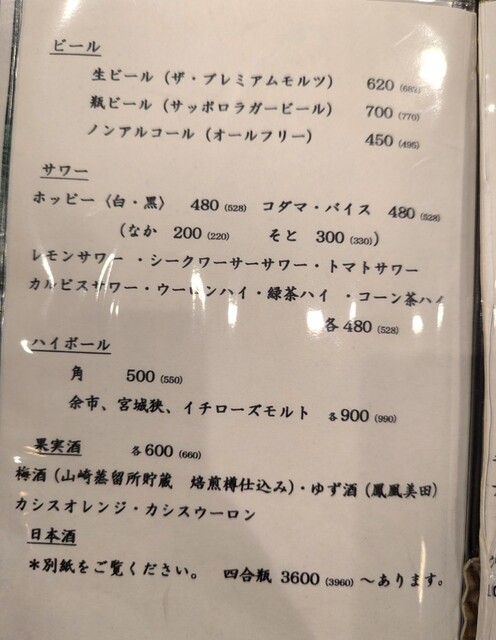 ビール
生ビール（ザ・プレミアムモルツ） 620 (682)
瓶ビール（サッポロラガービール） 700 (770)
ノンアルコール（オールフリー） 450 (495)
サワー
ホッピー〈白・黒〉 480 (528) コダマ・バイス 480 (528)
（なか 200 (220) そと 300 (330)）
レモンサワー ・シークワーサーサワー・トマトサワー
カルピスサワー・ウーロンハイ・緑茶ハイ ・コーン茶ハイ
各480 (528)
ハイボール
角 500 (550)
余市、宮城狭、イチローズモルト 各900 (990)
果実酒 各600 (660)
梅酒（山崎蒸留所貯蔵 焙煎樽仕込み）・ゆず酒（鳳凰美田）
カシスオレンジ・カシスウーロン
日本酒
＊別紙をご覧ください。 四合瓶 3600 (3960) ～あります。